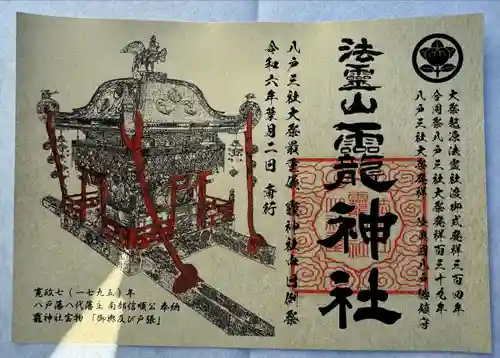 大祭起源法霊社渡御式発祥三百四年
合同祭八戸三社大祭発祥百三十九年
八戸三社大祭発祥 鎮守
法靈山龗神社
八戸三社大祭最重儀 龗神社中日例祭
令和六年葉月二日 斎行
寛政七(一七九五)年
八戸藩八代藩主 南部信順公 奉納
龗神社宝物「御輿及び戸張」